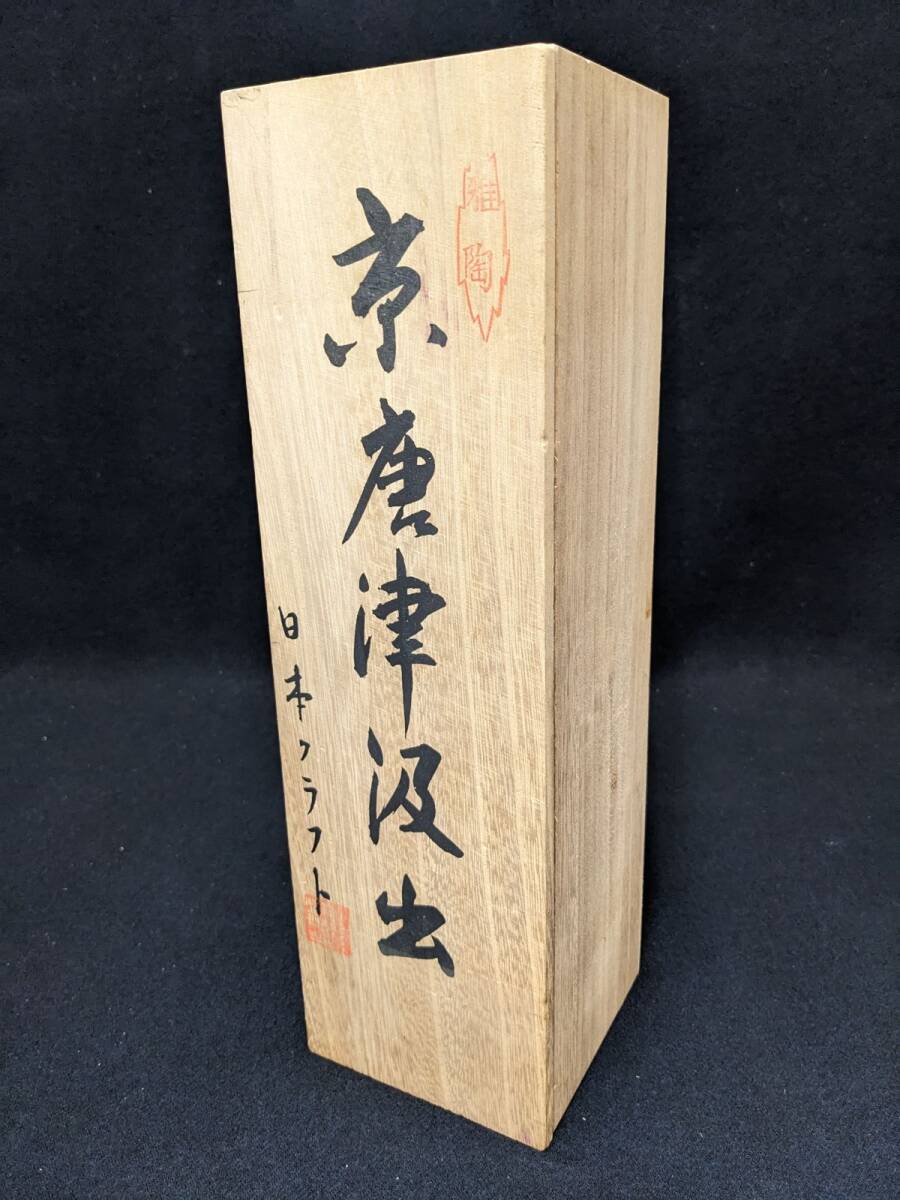 雅陶
京唐津汲出
日本クラフト